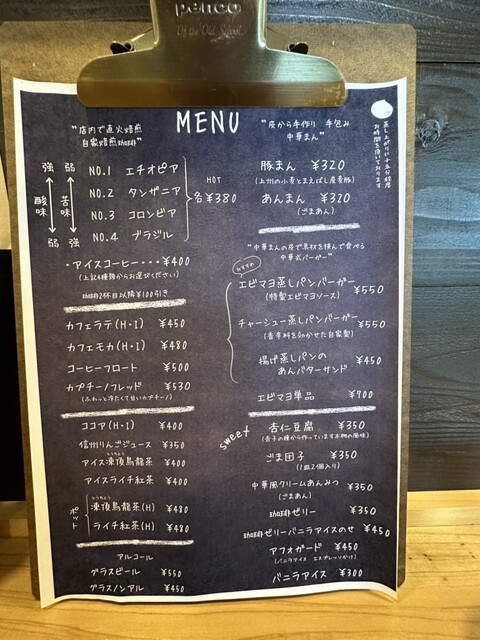 penco
Of the Old School
MENU
"店内で直火焙煎
自家焙煎珈琲"
強 弱
酸味 苦味
弱 強
NO.1 エチオピア
NO.2 タンザニア
NO.3 コロンビア
NO.4 ブラジル
HOT
各¥380
・アイスコーヒー・・・¥400
(上記4種類からお選びください)
珈琲2杯目以降¥100引き
カフェラテ(H・I) ¥450
カフェモカ(H・I) ¥480
コーヒーフロート ¥500
カプチーノフレッド ¥530
(ふわっと冷たくて甘いカプチーノ)
ココア(H・I) ¥400
信州りんごジュース ¥350
アイス凍頂烏龍茶 ¥400
アイスライチ紅茶 ¥400
ポット
凍頂烏龍茶(H) ¥480
ライチ紅茶(H) ¥480
アルコール
グラスビール ¥550
グラスノンアル ¥450
"皮から手作り 手包み
中華まん"
蒸し上がりに十五分程度
お時間を頂いております
豚まん ¥320
(上州の小麦とまえばし産麦豚)
あんまん ¥320
(ごまあん)
"中華まんの皮で具材を挟んで食べる
中華式バーガー"
おすすめ
エビマヨ蒸しパンバーガー ¥550
(特製エビマヨソース)
チャーシュー蒸しパンバーガー ¥550
(香辛料をきかせた自家製)
揚げ蒸しパンの
あんバターサンド ¥450
エビマヨ単品 ¥700
sweet
杏仁豆腐 ¥350
(杏子の種から作っています本物の風味)
ごま団子 ¥350
(1皿2個入り)
中華風クリームあんみつ ¥350
(ごまあん)
珈琲ゼリー ¥350
珈琲ゼリーバニラアイスのせ ¥450
アフォガード ¥450
(バニラアイス エスプレッソかけ)
バニラアイス ¥300